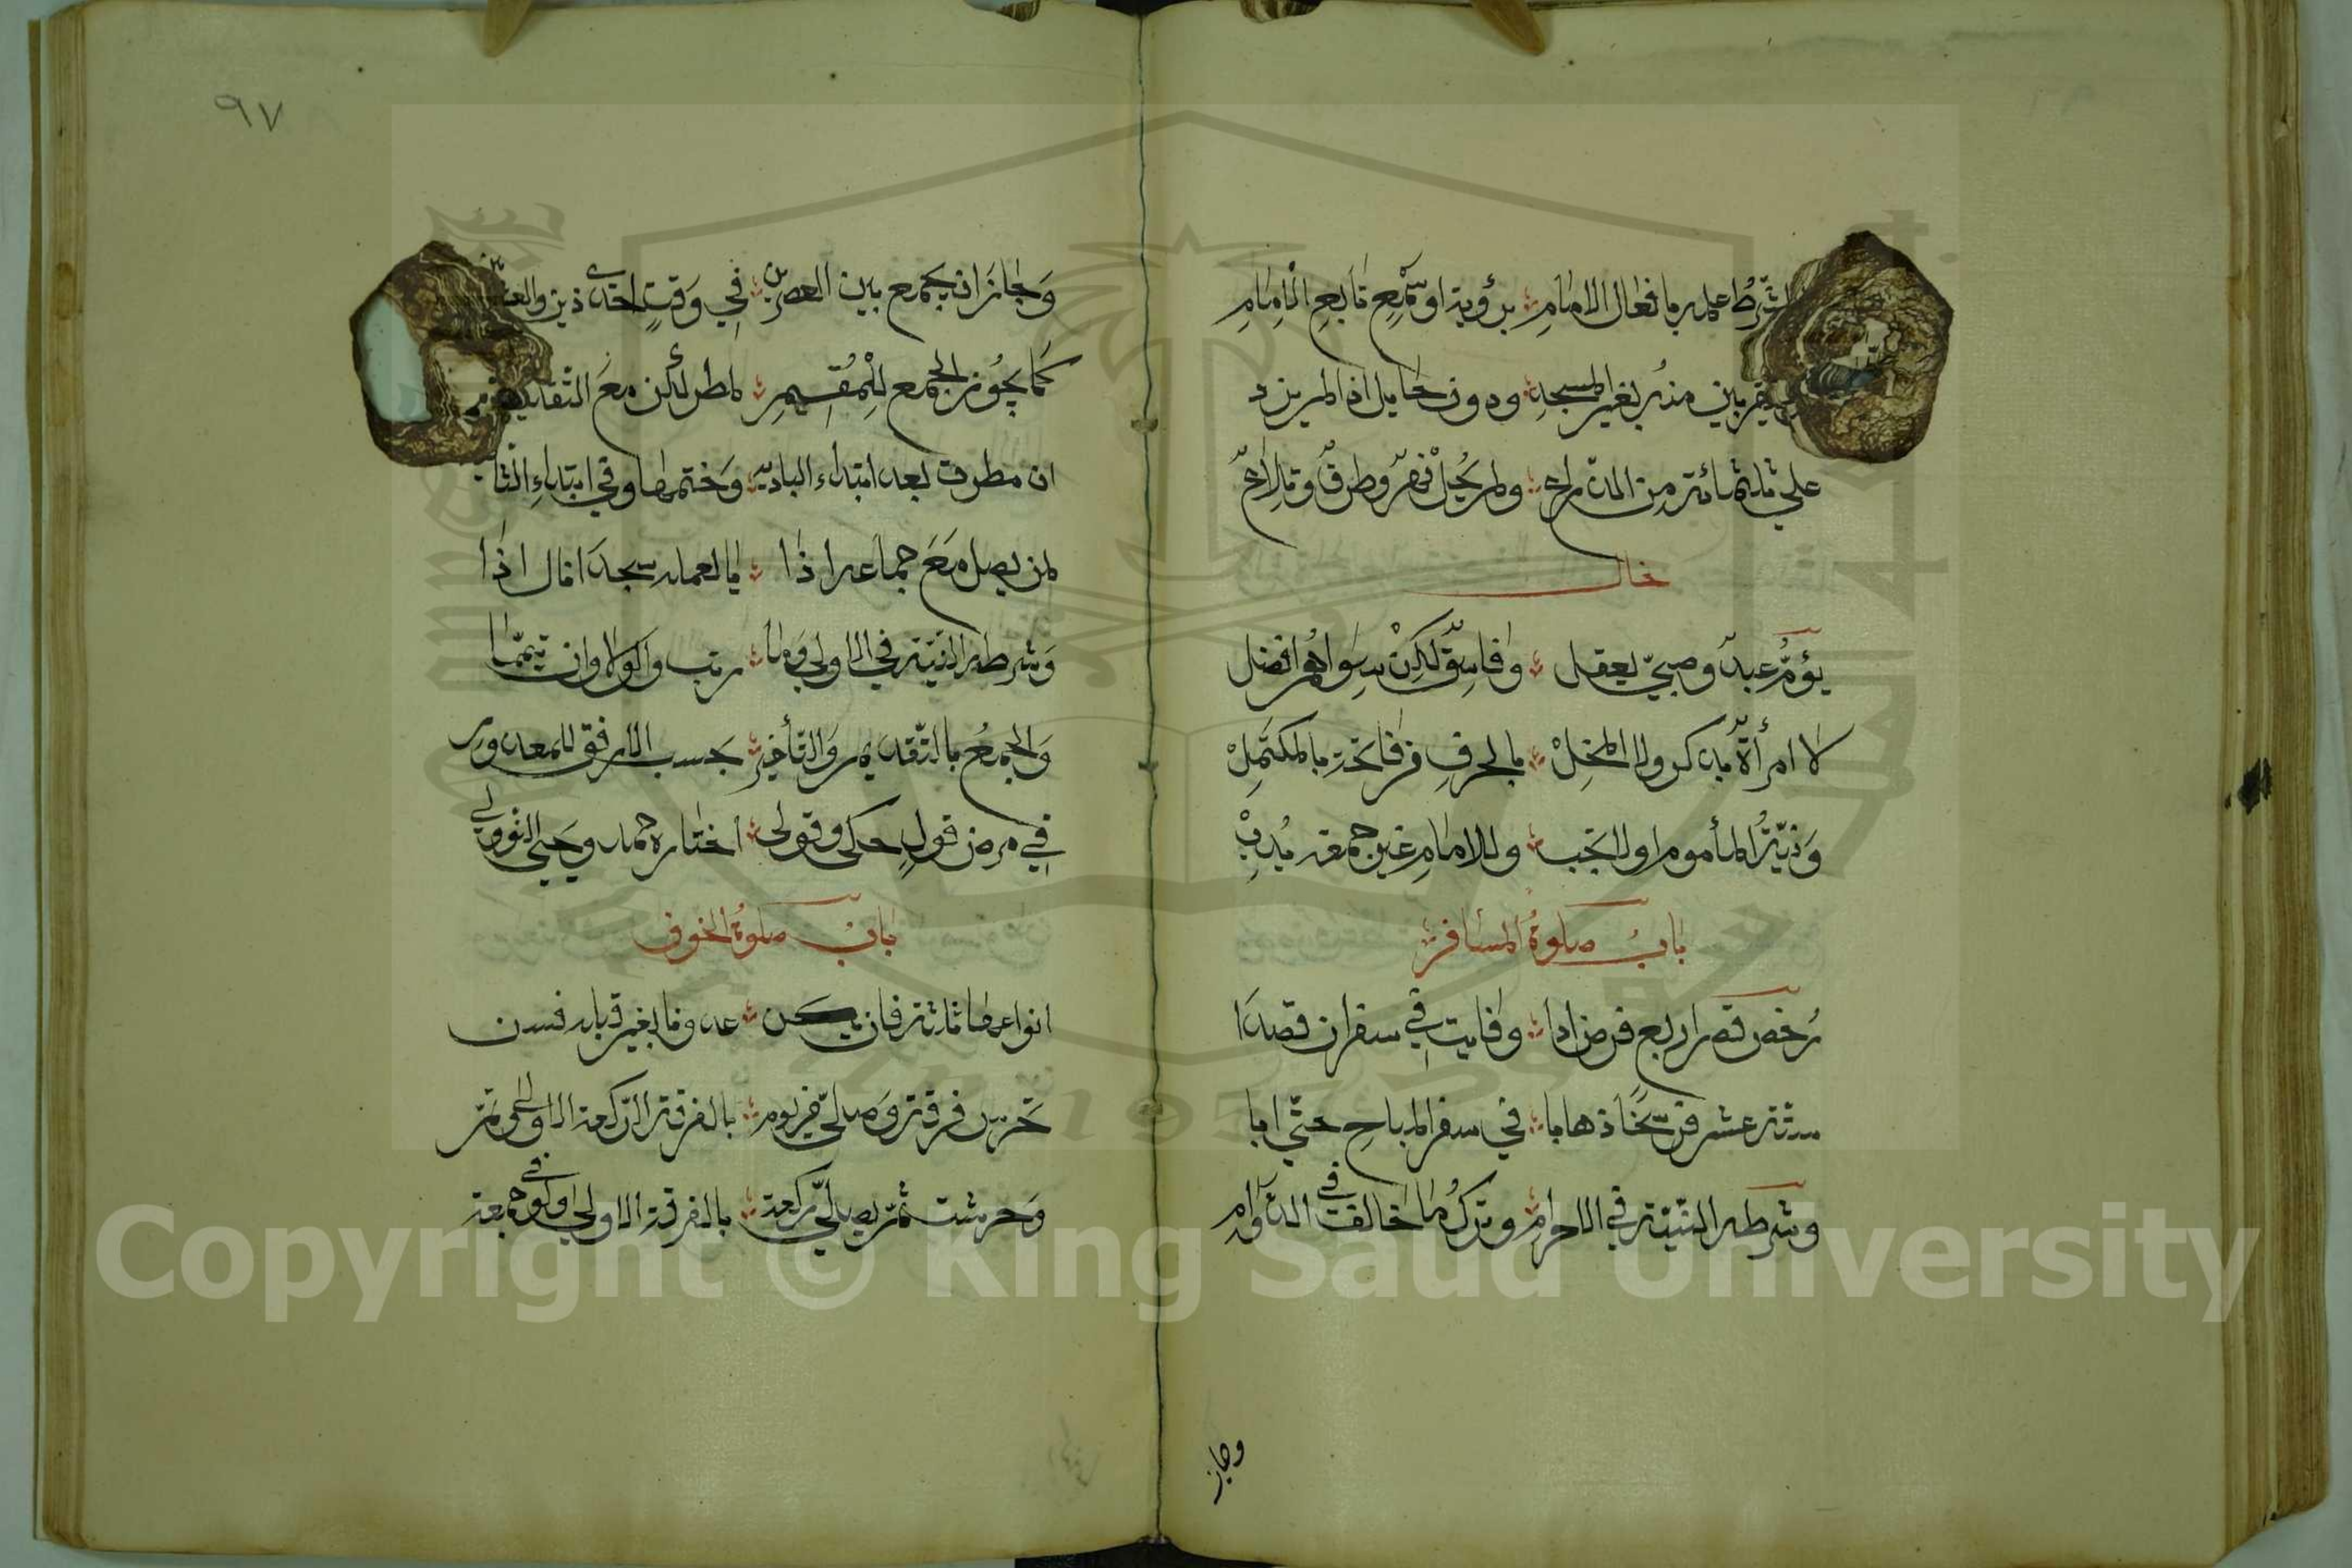 الشرط علمه بافعال الامام برؤية او سمع تابع الامام
يقربن منه بغير المسجد ودون حايل اذا لم يزد
على ثلثمائة من الذراع ولم يحل نهر وطرق وتلاع
يؤم عبد وصبي يعقل وفاسق لكن سواهم افضل
لا امرأة بذكر ولا المخل بالحرف من فاتحة بالمكتمل
ونية المأموم اولا تجب وللامام غير جمعة ندب
باب صلوة المسافر
رخص قصر اربع فرض ادا وفايت في سفر ان قصدا
ستة عشر فرسخا ذهابا في سفر المباح حتى ابا
وشرطه النية في الاحرام وترك ما خالف في الدوام
وجاز
٩٧
وجاز ان يجمع بين العصرين في وقت احدى ذين والعشائين
كما يجوز الجمع للمقيم لمطر لكن مع التقديم
ان مطرت بعد ابتداء البادية وختمها وفي ابتداء الثانية
لمن يصلي مع جماعة اذا ما بعيد مسجدا نال اذا
وشرطه النية في الاولى وما رتب والولا وان تيمما
والجمع بالتقديم والتأخير بحسب الارفق للمعذور
في مرض قول حكي وقوي اختاره حمد ويحيى النووي
باب صلوة الخوف
انواعها ثلثة فان يكن عدونا بغير قبلة فسن
تحرس فرقة وصلى من يؤم بالفرقة الركعة الاولى وتتم
وحرست ثم يصلي ركعة بالفرقة الاولى ولو في جمعة
Copyright © King Saud University
1957